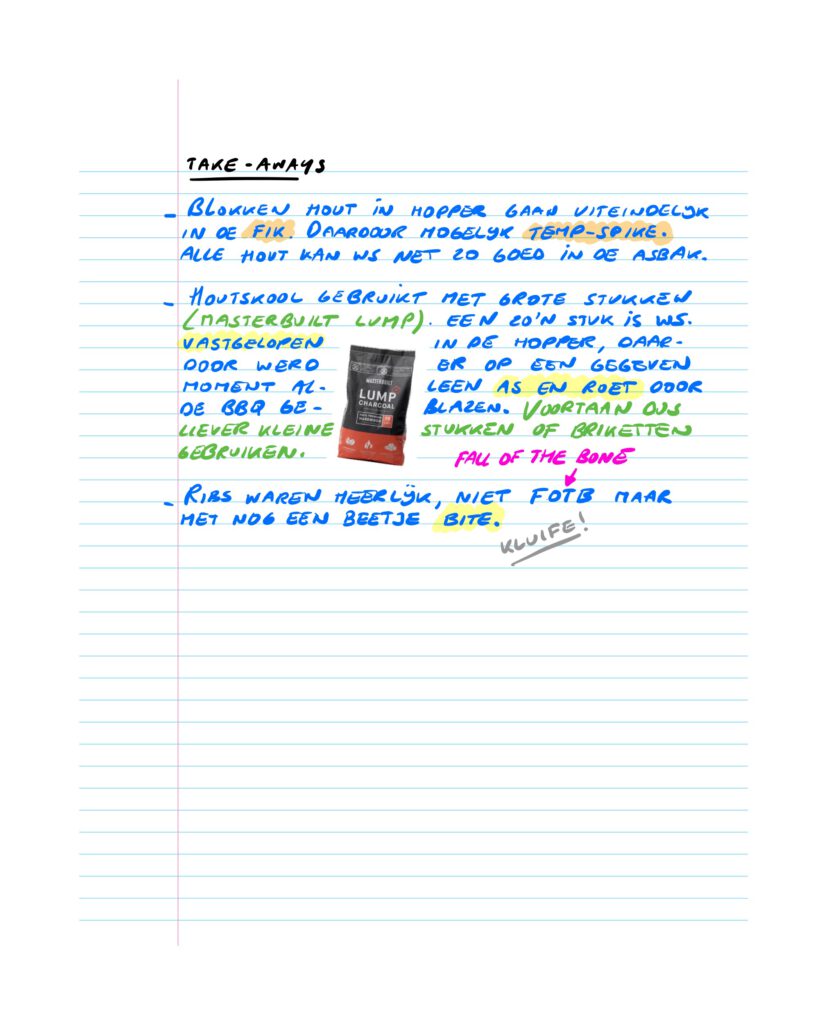 TAKE-AWAYS
- BLOKKEN HOUT IN HOPPER GAAN UITEINDELIJK
IN DE FIK. DAARDOOR MOGELIJK TEMP-SPIKE.
ALLE HOUT KAN WS NET ZO GOED IN DE ASBAK.
- HOUTSKOOL GEBRUIKT MET GROTE STUKKEN
(MASTERBUILT LUMP). EEN ZO'N STUK IS WS.
VASTGELOPEN IN DE HOPPER, DAAR-
DOOR WERD ER OP EEN GEGEVEN
MOMENT AL- LEEN AS EN ROET DOOR
DE BBQ GE- BLAZEN. VOORTAAN DUS
LIEVER KLEINE STUKKEN OF BRIKETTEN
GEBRUIKEN.
MASTERBUILT
LUMP
CHARCOAL
FALL OF THE BONE
- RIBS WAREN HEERLIJK, NIET FOTB MAAR
MET NOG EEN BEETJE BITE.
KLUIFE!